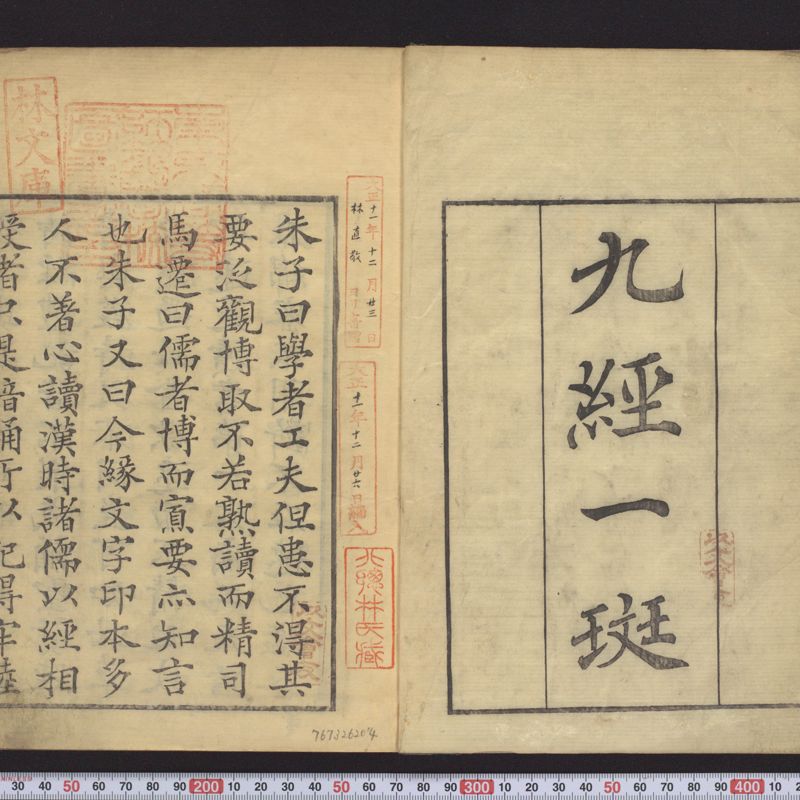 九經一斑
大正十一年十二月廿三日
林直敬
大正十一年十二月廿六日編入
林文庫
朱子曰學者工夫但患不得其
要泛觀博取不若熟讀而精司
馬遷曰儒者博而寡要亦知言
也朱子又曰今緣文字印本多
人不著心讀漢時諸儒以經相
受者只是暗誦所以記得牢
7673262074
30 40 50 60 70 80 90 200 10 20 30 40 50 60 70 80 90 300 10 20 30 40 50 60 70 80 90 400 10 20